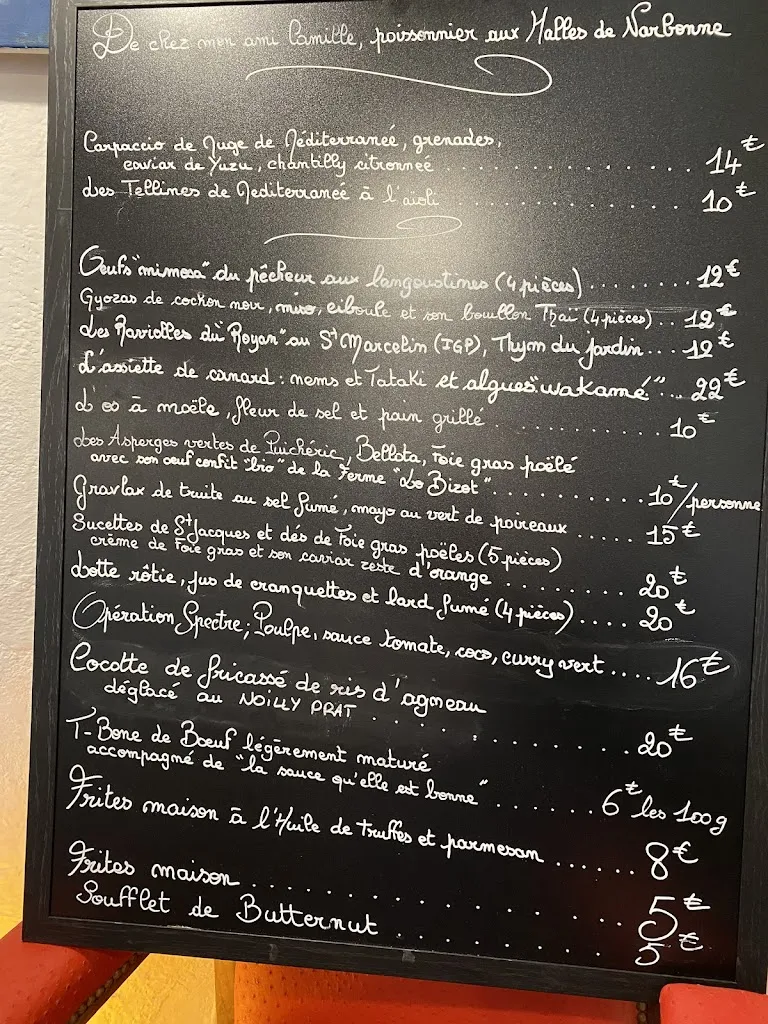 De chez mon ami Camille, poissonnier aux Halles de Narbonne
Carpaccio de Muge de Méditerraneé, grenades,
caviar de Yuzu, chantilly citronneé . . . . . . . . . . 14€
Les Tellines de Mediterraneé à l'aioli . . . . . . . . . . 10€
Oeufs "mimosa" du pêcheur aux langoustines (4 pièces) . . . . . . . . 12€
Gyozas de cochon noir, miso, ciboule et son bouillon Thaï (4 pièces) . . 12€
Les Ravioles du Royan" au St Marcelin (IGP), Thym du Jardin . . . 12€
L'assiette de canard : nems et Tataki et algues "wakamé" . . . 22€
L'os à moëlle, fleur de sel et pain grillé . . . . . . . . . 10€
Les Asperges vertes de Puichéric, Bellota, Foie gras poëlé
avec son oeuf confit "bio" de la Ferme "Le Bizot" . . . . . . . . . 10€/personne
Gravlax de truite au sel fumé, mayo au vert de poireaux . . . . 15€
Sucettes de St Jacques et dés de Foie gras poëles (5 pièces)
crème de Foie gras et son caviar zeste d'orange . . . . . . . . 20€
Lotte rôtie, jus de cranquettes et lard fumé (4 pièces) . . . . 20€
Opération Spectre ; Poulpe, sauce tomate, coco, curry vert . . . . 16€
Cocotte de fricassé de ris d'agneau
déglacé au NOILLY PRAT . . . . . . . . . . . . . 20€
T-Bone de Bœuf légèrement maturé
accompagné de "la sauce qu'elle est bonne" . . . . . . . 6€ les 100g
Frites maison à l'Huile de Truffes et parmesan . . . . . . 8€
Frites maison . . . . . . . . . . . . . . . 5€
Soufflet de Butternut . . . . . . . . . . . 5€